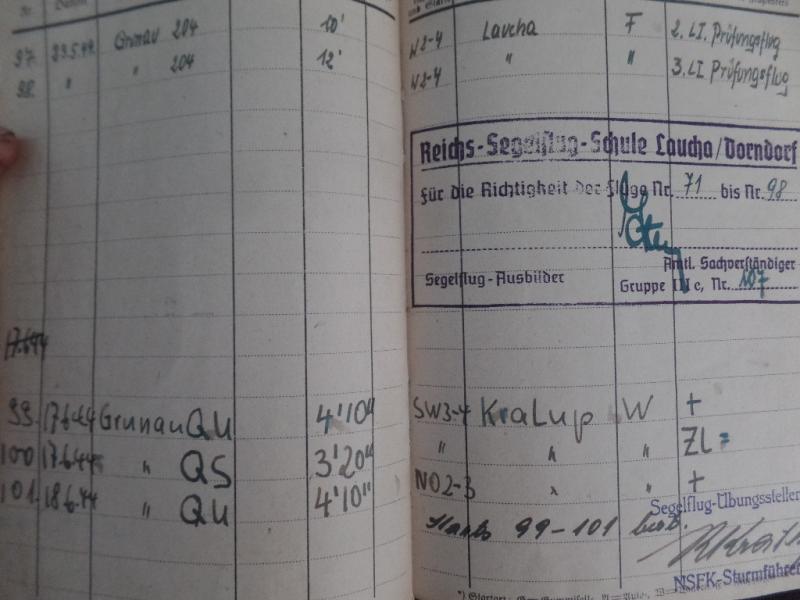 97. 23.5.44 Grunau 204 10' W2-4 Laucha F 2. LI. Prüfungsflug
98. " " 204 12' W2-4 " " 3. LI Prüfungsflug
Reichs-Segelflug-Schule Laucha/Dorndorf
Für die Richtigkeit der Flüge Nr. 71 bis Nr. 98
Amtl. Sachverständiger
Segelflug-Ausbilder Gruppe III c, Nr. 107
17.6.44
99. 17.6.44 Grunau QU 4'10" SW3-4 Kralup W +
100 17.6.44 " QS 3'20" " " " ZL =
101. 18.6.44 " QU 4'10" NO2-3 " " +
Segelflug-Übungsstellen
Starts 99-101
NSFK-Sturmführer